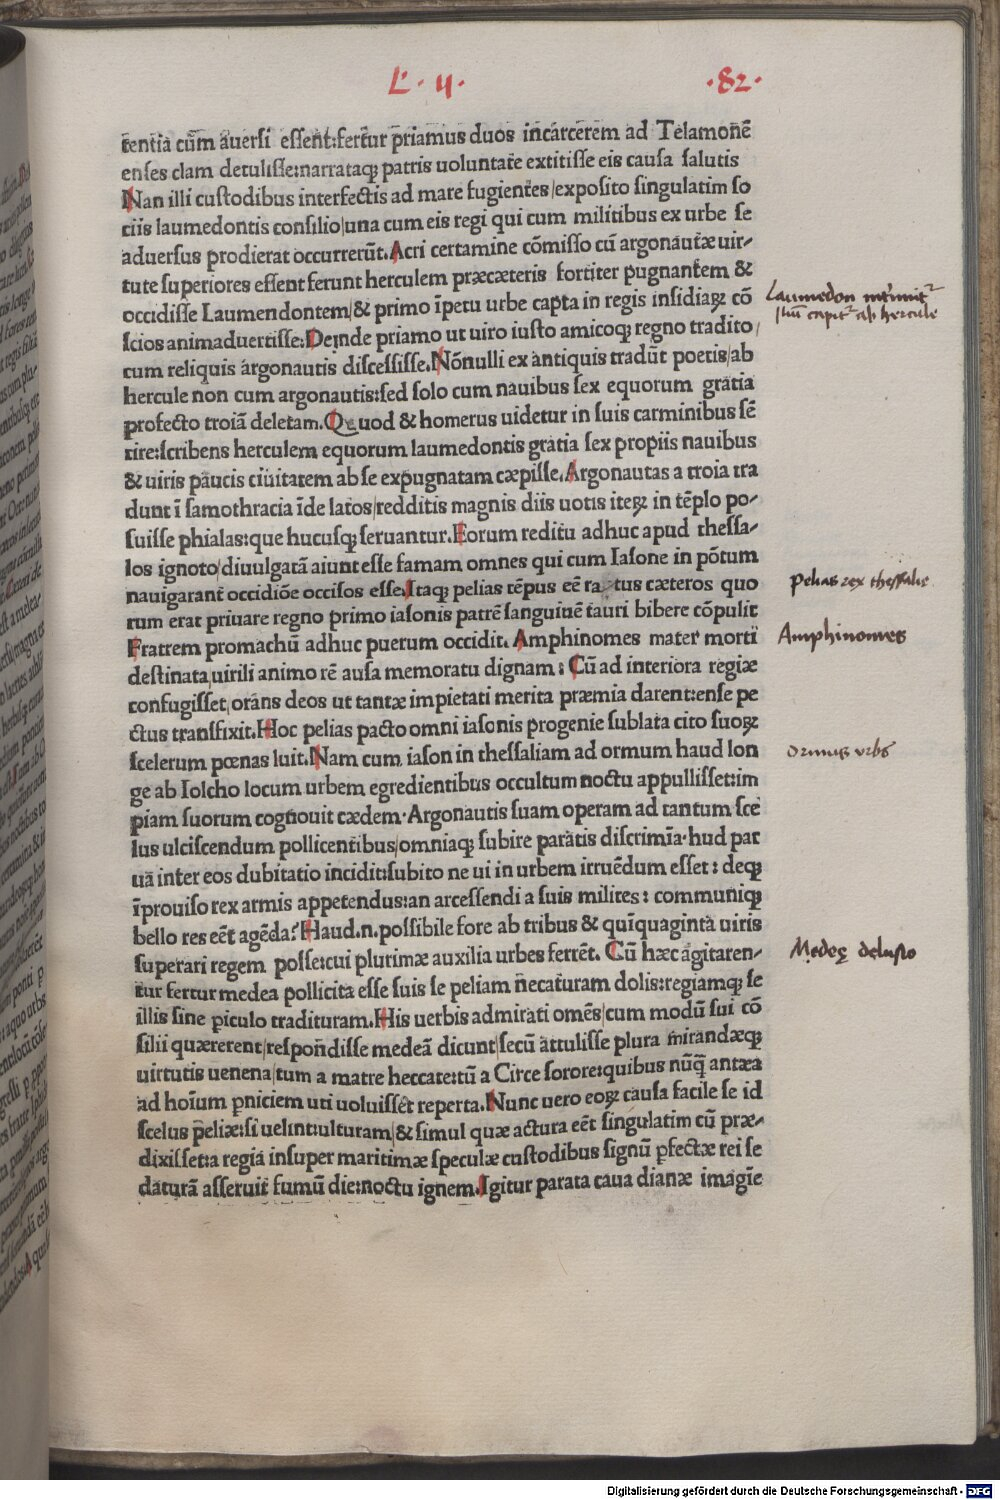 L. 4. .82.
tentia cum̄ auersi essent:fert̄ur priamus duos in cárcerem ad Telamonē
enses clam detulisse:narrataqꝫ patris uoluntate extitisse eis causa salutis
Nan illi custodibus interfectis ad mare fugientes/exposito singulatim so
ciis laumedontis consilio/una cum eis regi qui cum militibus ex urbe se
aduersus prodierat occurrerūt.Acri certamine cōmisso cū argonautæ uir-
tute superiores essent ferunt herculem præcæteris fortiter pugnantem &
occidisse Laumendontem/& primo īpetu urbe capta in regis insidiaꝝ cō
scios animaduertisse:Deinde priamo ut uiro iusto amicoqꝫ regno tradito/
cum reliquis argonautis discessisse.Nōnulli ex antiquis tradūt poetis/ab
hercule non cum argonautis:sed solo cum nauibus sex equorum gratia
profecto troiā deletam.Quod & homerus uidetur in suis carminibus sē
tire:scribens herculem equorum laumedontis gratia sex propiis nauibus
& uiris paucis ciuitatem ab se expugnatam cæpisse.Argonautas a troia tra
dunt ī samothracia īde latos/redditis magnis diis uotis iteꝝ in tēplo po-
suisse phialas:que hucusqꝫ seruantur.Eorum reditu adhuc apud thessa-
los ignoto/diuulgatā aiunt esse famam omnes qui cum Iasone in pōtum
nauigarant occidiōe occisos esse.Itaqꝫ pelias tēpus eē ratus cæteros quo
rum erat priuare regno primo iasonis patrē sanguinē tauri bibere cōpulit
Fratrem promachū adhuc puerum occidit. Amphinomes mater morti
destinata/uirili animo rē ausa memoratu dignam: Cū ad interiora regiæ
confugisset/orans deos ut tantæ impietati merita præmia darent:ense pe
ctus transfixit.Hoc pelias pacto omni iasonis progenie sublata cito suoꝝ
scelerum pœnas luit.Nam cum iason in thessaliam ad ormum haud lon
ge ab Iolcho locum urbem egredientibus occultum noctu appullisset:im
piam suorum cognouit cædem.Argonautis suam operam ad tantum sce
lus ulciscendum pollicentibus/omniaqꝫ subire paratis discrimīa.hud par
uā inter eos dubitatio incidit:subito ne ui in urbem irruēdum esset: deqꝫ
īprouiso rex armis appetendus:an arcessendi a suis milites: communiqꝫ
bello res eēt agēda?Haud.n.possibile fore ab tribus & quīquaginta uiris
superari regem posse:cui plurimæ auxilia urbes ferrēt. Cū hæc agitaren-
tur fertur medea pollicita esse suis se peliam necaturam dolis:regiamqꝫ se
illis sine piculo tradituram.His uerbis admirati omēs/cum modū sui cō
silii quærerent/respondisse medeā dicunt/secū attulisse plura mirandæqꝫ
uirtutis uenena/tum a matre heccate:tū a Circe sorore:quibus nūqꝙ̄ antæa
ad hoīum p̄niciem uti uoluisset reperta.Nunc uero eoꝝ causa facile se id
scelus peliæ:si uelint:ulturam/& simul quæ actura eēt singulatim cū præ-
dixisset:a regia insuper maritimæ speculæ custodibus signū p̄fectæ rei se
daturā asseruit fumū die:noctu ignem.Igitur parata caua dianæ imagīe
pelias rex thessalie
Amphinomes
ormus urbs
Medeę delusio
Digitalisierung gefördert durch die Deutsche Forschungsgemeinschaft - DFG